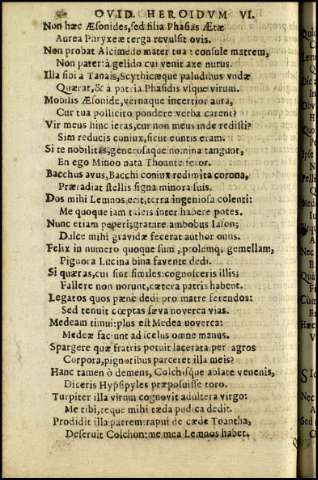 OVID. HEROIDVM VI.
Non hæc Æsonides, sed filia Phasias Æetæ
Aurea Phryxeæ terga revulsit ovis.
Non probat Alcimede mater tua: consule matrem,
Non pater: à gelido cui venit axe nurus.
Illa sibi à Tanais, Scythicæque paludibus vndæ
Quærat, & à patria Phasidis vsque virum.
Mobilis Æsonide, vernaque incertior aura,
Cur tua pollicito pondere verba carent?
Vir meus hinc ieras, cur non meus inde redisti?
Sim reducis coniux, sicut euntis eram.
Si te nobilitas, generosaque nomina tangunt,
En ego Minoo nata Thoante feror.
Bacchus avus, Bacchi coniux redimita corona,
Præradiat stellis signa minora suis.
Dos mihi Lemnos erit, terra ingeniosa colenti:
Me quoque iam inter habere potes.
Nunc etiam peperi, gratare ambobus Iason;
Dulce mihi gravidæ fecerat author onus.
Felix in numero quoque sum, prolemq; gemellam,
Pignora Lucina bina favente dedi.
Si quæras, cui sint similes: cognosceris illis;
Fallere non norunt, cætera patris habent.
Legatos quos pæne dedi pro matre ferendos:
Sed tenuit cœptas sæva noverca vias.
Medeam timui: plus est Medea noverca:
Medeæ faciunt ad scelus omne manus.
Spargere quæ fratris potuit lacerata per agros
Corpora, pignoribus parceret illa meis?
Hanc tamen ô demens, Colchisque ablate venenis,
Diceris Hypsipyles præposuisse toro.
Turpiter illa virum cognovit adultera virgo:
Me tibi, teque mihi tæda pudica dedit.
Prodidit illa patrem: rapui de cæde Toantha,
Deseruit Colchon: me mea Lemnos habet.